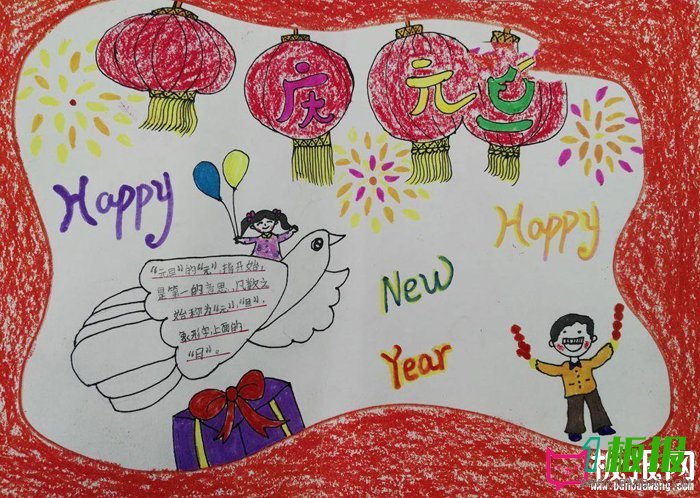 庆元旦
Happy
Happy
New
Year
"元旦"的"元",指开始,
是第一的意思,凡数之
始称为"元";"旦",
象形字,上面的
"日"。
1板报
板报网
www.banbaowang.com